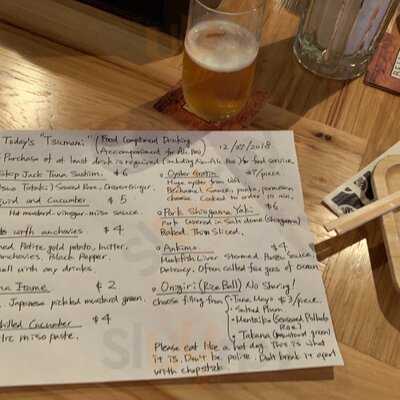 Today's "Tsumami" (Food Complement Drinking
Accompaniment for Alcohol) 12/01/2018
Purchase of at least drink is required (including Non Alc. too) for food service
Jack Tuna Sashimi. $6
Tataki) Seared Rare, Ginger.
and Cucumber $5
mustard vinegar miso sauce.
with anchovies $4
gold potato, butter,
anchovies, Black Pepper.
well with any drinks.
$2
Japanese pickled mustard green.
Chilled Cucumber $4
miso paste.
○ Oyster Gratin $7/piece
Huge oyster from
Bechamel sauce, panko, parmesan
cheese. Cooked to order 10 min.
○ Pork Shiogama Yaki $6
Pork covered in salt dome (shiogama)
Baked. Thin Sliced.
○ Ankimo $4
Monkfish Liver Steamed. Ponzu Sauce.
Delicacy. Often called foie gras of ocean
○ Onigiri (Rice Ball) No Sharing!
choose filling from • Tuna Mayo. $3/piece.
• Salted Plum
• Mentaiko (Seasoned Pollock
Roe)
• Takana (mustard green)
Please eat like a hot dog. This is what
it is. Don't be polite. Don't break it apart
with chopstick